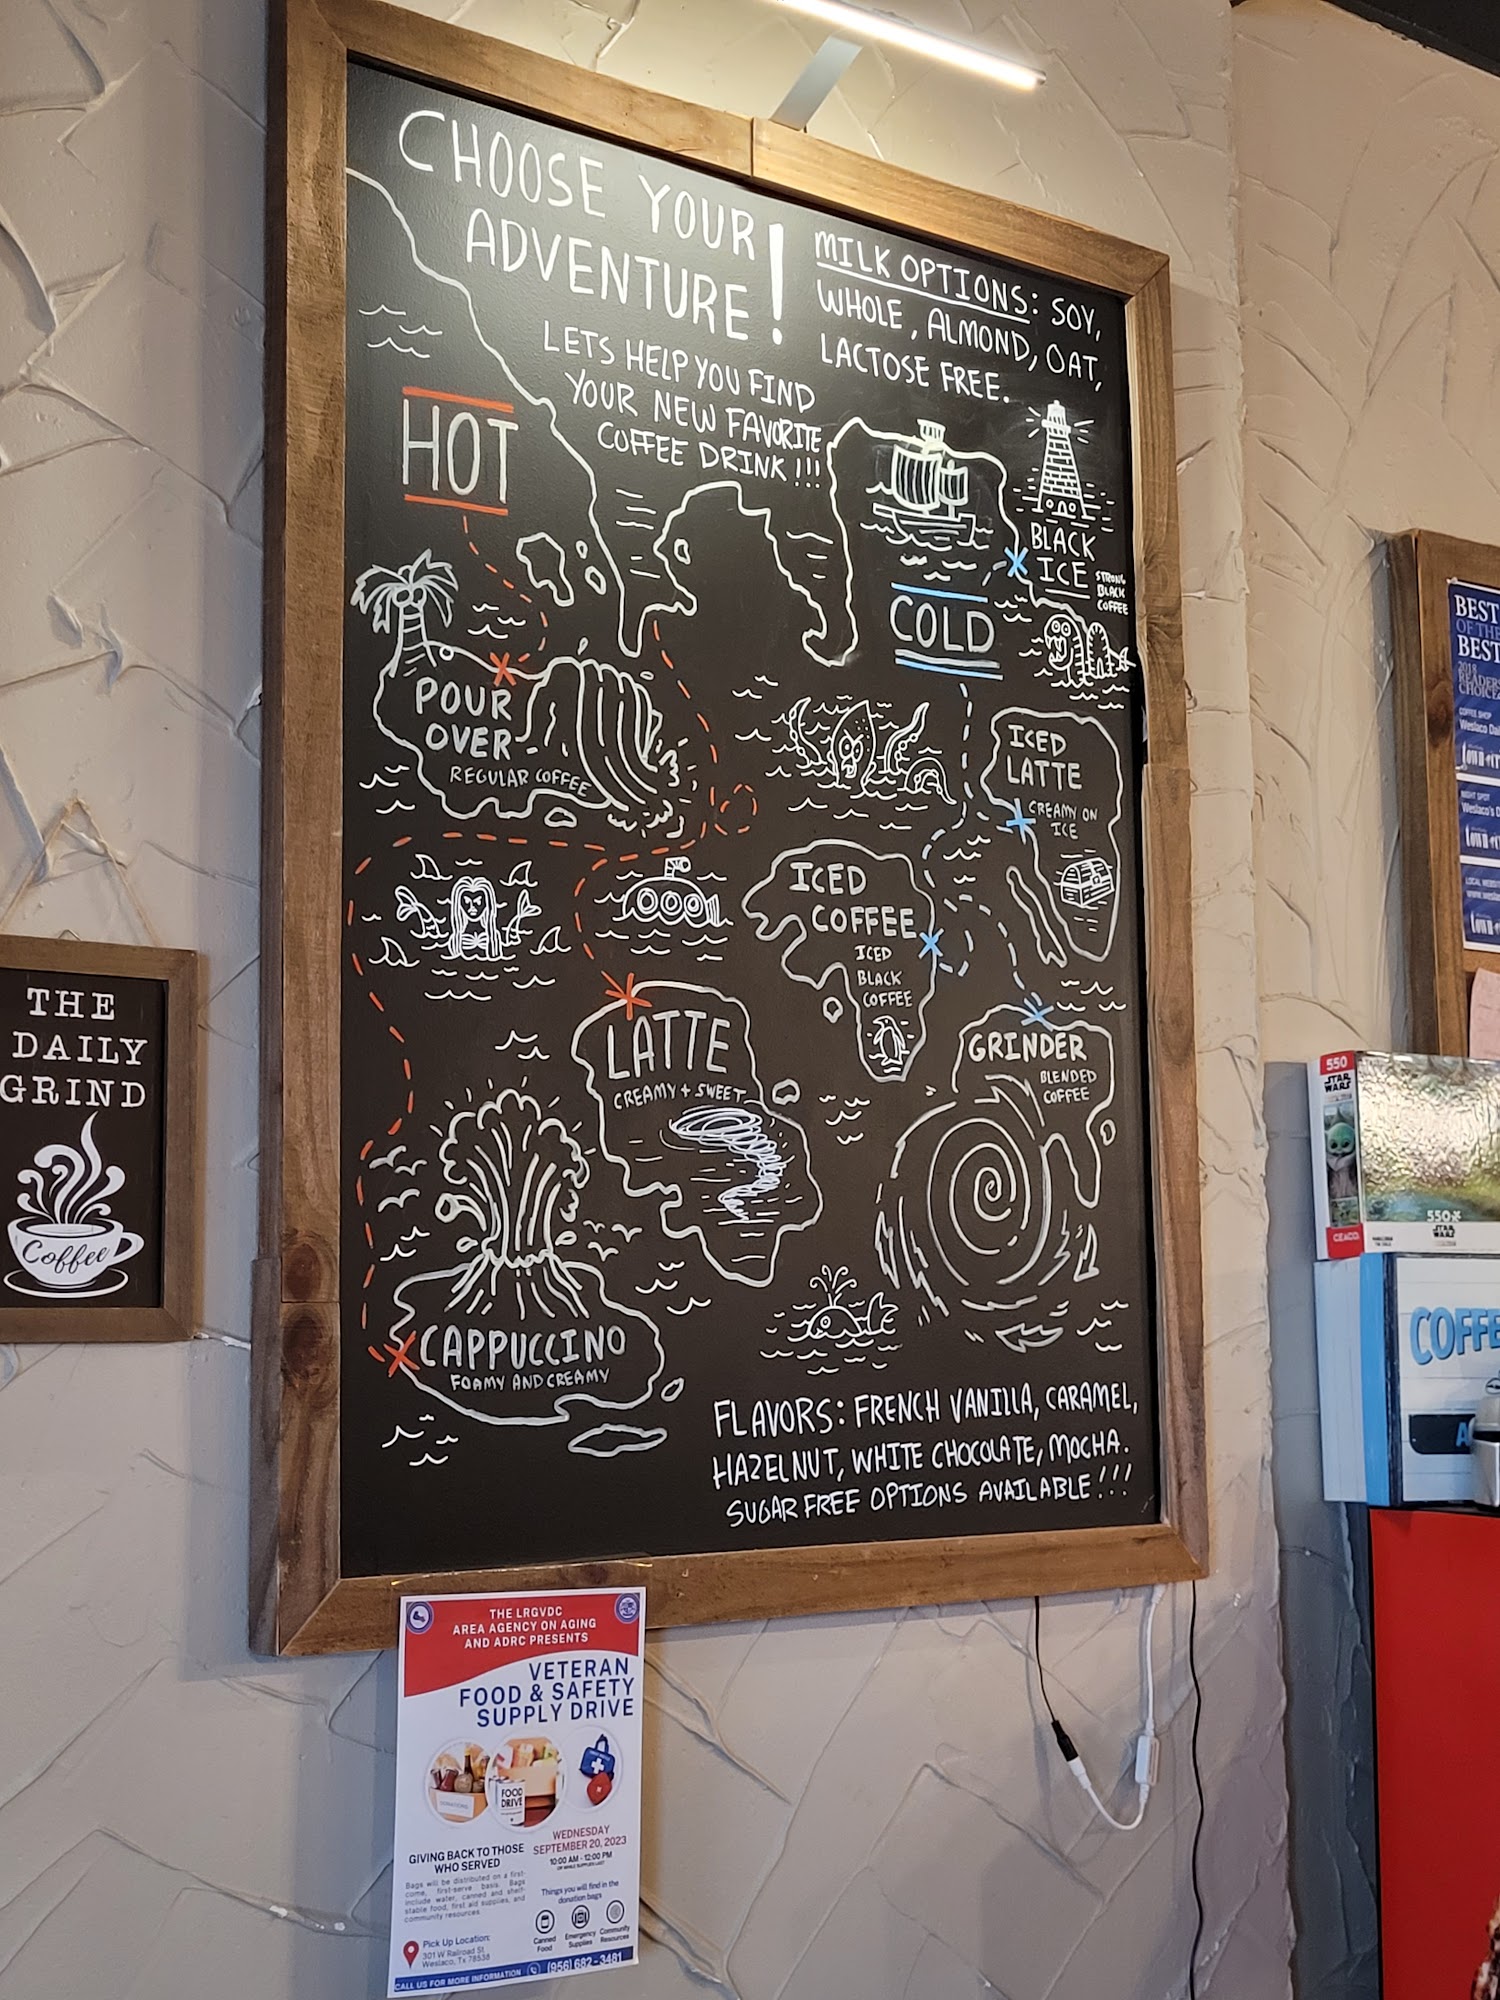 CHOOSE YOUR
ADVENTURE!
LETS HELP YOU FIND
YOUR NEW FAVORITE
COFFEE DRINK!!!
MILK OPTIONS: SOY,
WHOLE, ALMOND, OAT,
LACTOSE FREE.
HOT
POUR
OVER
REGULAR COFFEE
LATTE
CREAMY + SWEET
CAPPUCCINO
FOAMY AND CREAMY
COLD
BLACK
ICE
STRONG
BLACK
COFFEE
ICED
LATTE
CREAMY ON
ICE
ICED
COFFEE
ICED
BLACK
COFFEE
GRINDER
BLENDED
COFFEE
FLAVORS: FRENCH VANILLA, CARAMEL,
HAZELNUT, WHITE CHOCOLATE, MOCHA.
SUGAR FREE OPTIONS AVAILABLE!!!
THE
DAILY
GRIND
Coffee
THE LRGVDC
AREA AGENCY ON AGING
AND ADRC PRESENTS
VETERAN
FOOD & SAFETY
SUPPLY DRIVE
DONATIONS
FOOD
DRIVE
GIVING BACK TO THOSE
WHO SERVED
Bags will be distributed on a first-
come, first-serve basis. Bags
include water, canned and shelf-
stable food, first aid supplies, and
community resources.
Pick Up Location:
301 W Railroad St.
Weslaco, Tx 78538
WEDNESDAY
SEPTEMBER 20, 2023
10:00 AM - 12:00 PM
OR WHILE SUPPLIES LAST
Things you will find in the
donation bags
Canned
Food
Emergency
Supplies
Community
Resources
CALL US FOR MORE INFORMATION (956) 682-3481
BEST
OF THE
BEST
2018
READERS
CHOICE
COFFEE SHOP
Weslaco
NIGHT SPOT
Weslaco's
550
STAR
WARS
CEACO
550
STAR
WARS
COFFE